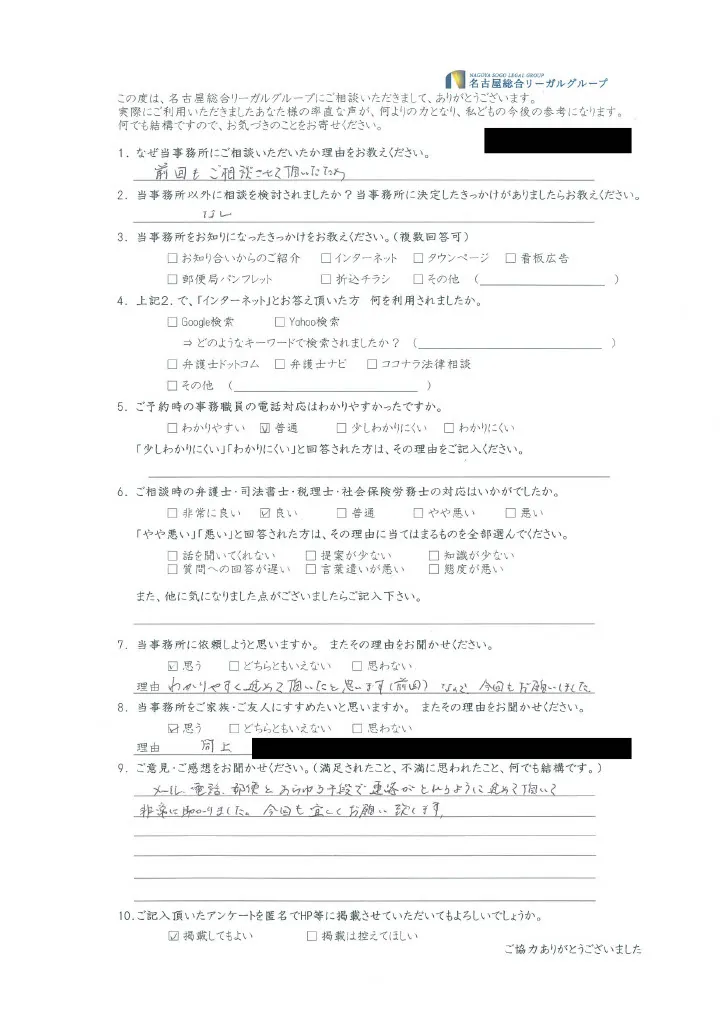 NAGOYA SOGO LEGAL GROUP
名古屋総合リーガルグループ
この度は、名古屋総合リーガルグループにご相談いただきまして、ありがとうございます。
実際にご利用いただきましたあなた様の率直な声が、何よりの力となり、私どもの今後の参考になります。
何でも結構ですので、お気づきのことをお寄せください。
1. なぜ当事務所にご相談いただいたか理由をお教えください。
前回もご相談させて頂いたため
2. 当事務所以外に相談を検討されましたか？当事務所に決定したきっかけがありましたらお教えください。
なし
3. 当事務所をお知りになったきっかけをお教えください。（複数回答可）
□お知り合いからのご紹介 □インターネット □タウンページ □看板広告
□郵便局パンフレット □折込チラシ □その他 （ ）
4. 上記2. で、「インターネット」とお答え頂いた方 何を利用されましたか。
□Google検索 □Yahoo検索
⇒どのようなキーワードで検索されましたか？ （ ）
□弁護士ドットコム □弁護士ナビ □ココナラ法律相談
□その他 （ ）
5. ご予約時の事務職員の電話対応はわかりやすかったですか。
□わかりやすい ☑普通 □少しわかりにくい □わかりにくい
「少しわかりにくい」「わかりにくい」と回答された方は、その理由をご記入ください。
6. ご相談時の弁護士・司法書士・税理士・社会保険労務士の対応はいかがでしたか。
□非常に良い ☑良い □普通 □やや悪い □悪い
「やや悪い」「悪い」と回答された方は、その理由に当てはまるものを全部選んでください。
□話を聞いてくれない □提案が少ない □知識が少ない
□質問への回答が遅い □言葉遣いが悪い □態度が悪い
また、他に気になりました点がございましたらご記入下さい。
7. 当事務所に依頼しようと思いますか。 またその理由をお聞かせください。
☑思う □どちらともいえない □思わない
理由 わかりやすく進めて頂いたと思います(前回) なので 今回もお願いしました。
8. 当事務所をご家族・ご友人にすすめたいと思いますか。 またその理由をお聞かせください。
☑思う □どちらともいえない □思わない
理由 同上
9. ご意見・ご感想をお聞かせください。（満足されたこと、不満に思われたこと、何でも結構です。）
メール、電話、郵便とあらゆる手段で連絡がとれるように進めて頂いて
非常に助かりました。今回も宜しくお願い致します。
10.ご記入頂いたアンケートを匿名でHP等に掲載させていただいてもよろしいでしょうか。
☑掲載してもよい □掲載は控えてほしい
ご協力ありがとうございました